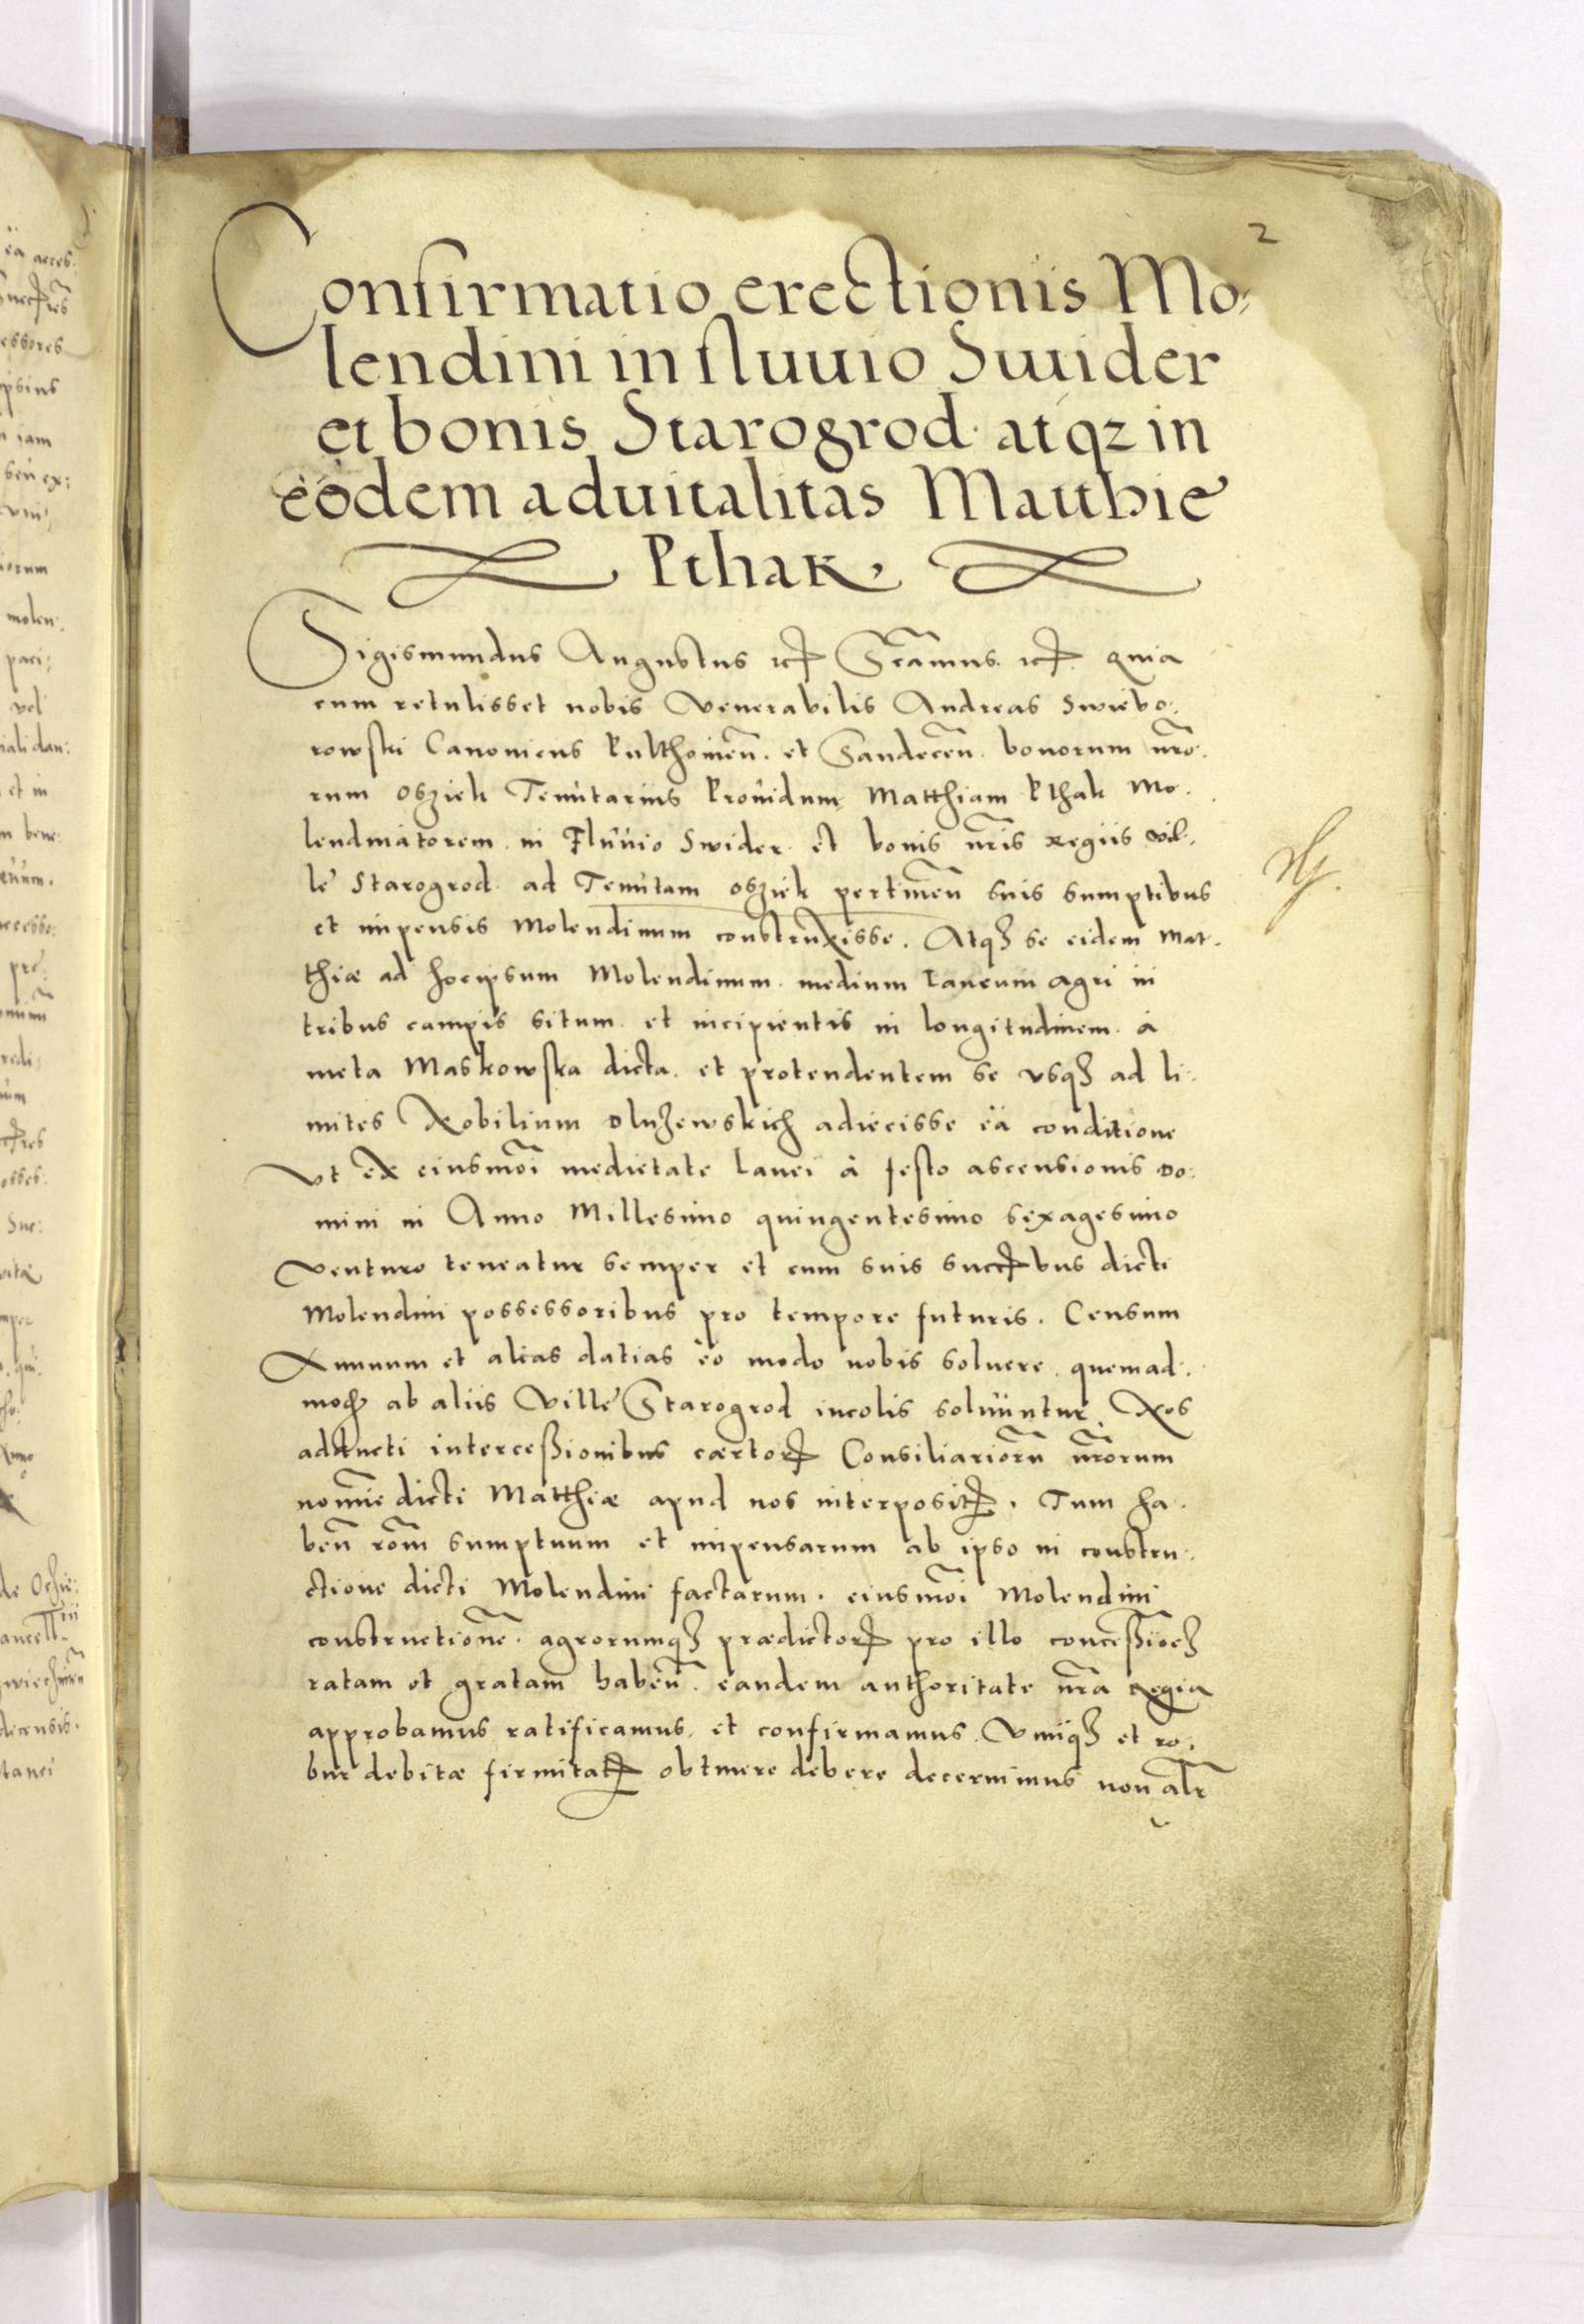 2
Confirmatio erectionis Mo-
lendini in fluuio Swider
et bonis Starogrod. atqz in
eodem aduitalitas Matthie
Pthak,
Sigismundus Augustus etc. etc. Quia
cum retulisset nobis Venerabilis Andreas Swiebo:
rowski Canonicus et Sandecen. bonorum nro:
rum Osziek Tenutarius Prouidum Matthiam Pthak Mo:
lendinatorem in Fluuio Swider et bonis nris Regiis vil:
le Starogrod ad Tenutam Osziek pertinen suis sumptibus
et impensis Molendinum construxisse. Atqz se eidem Mat:
thiæ ad hocipsum Molendinum medium Laneum agri in
tribus campis situm et incipientis in longitudinem à
meta Maskowska dicta et protendentem se vsqz ad li:
mites Nobilium Dluzewskich adiecisse ea conditione
Vt ex eiusmoi medietate Lanei à festo ascensionis Do:
mini in Anno Millesimo quingentesimo sexagesimo
venturo teneatur semper et cum suis succbus dicti
Molendini possessoribus pro tempore futuris. Censum
Annuum et alias datias eo modo nobis soluere quemad:
mod ab aliis Ville Starogrod incolis soluuntur. Nos
adducti interceßionibus certor Consiliarioru nrorum
nomine dicti Matthiæ apud nos interposit. Tum ha:
ben rom sumptuum et impensarum ab ipso in constru:
ctione dicti Molendini factarum. eiusmoi Molendini
constructione. agrorumqz prædictor pro illo conceßioez
ratam et gratam haben. eandem authoritate nra Regia
approbamus ratificamus et confirmamus. Vimqz et ro:
bur debitæ firmitat obtinere debere decernimus non alr